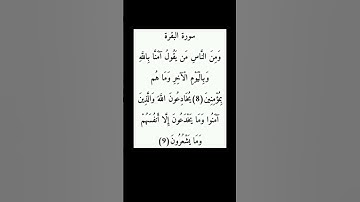 سورة البقرة
وَمِنَ النَّاسِ مَن يَقُولُ آمَنَّا بِاللَّهِ
وَبِالْيَوْمِ الْآخِرِ وَمَا هُم
بِمُؤْمِنِينَ (8) يُخَادِعُونَ اللَّهَ وَالَّذِينَ
آمَنُوا وَمَا يَخْدَعُونَ إِلَّا أَنفُسَهُمْ
وَمَا يَشْعُرُونَ (9)